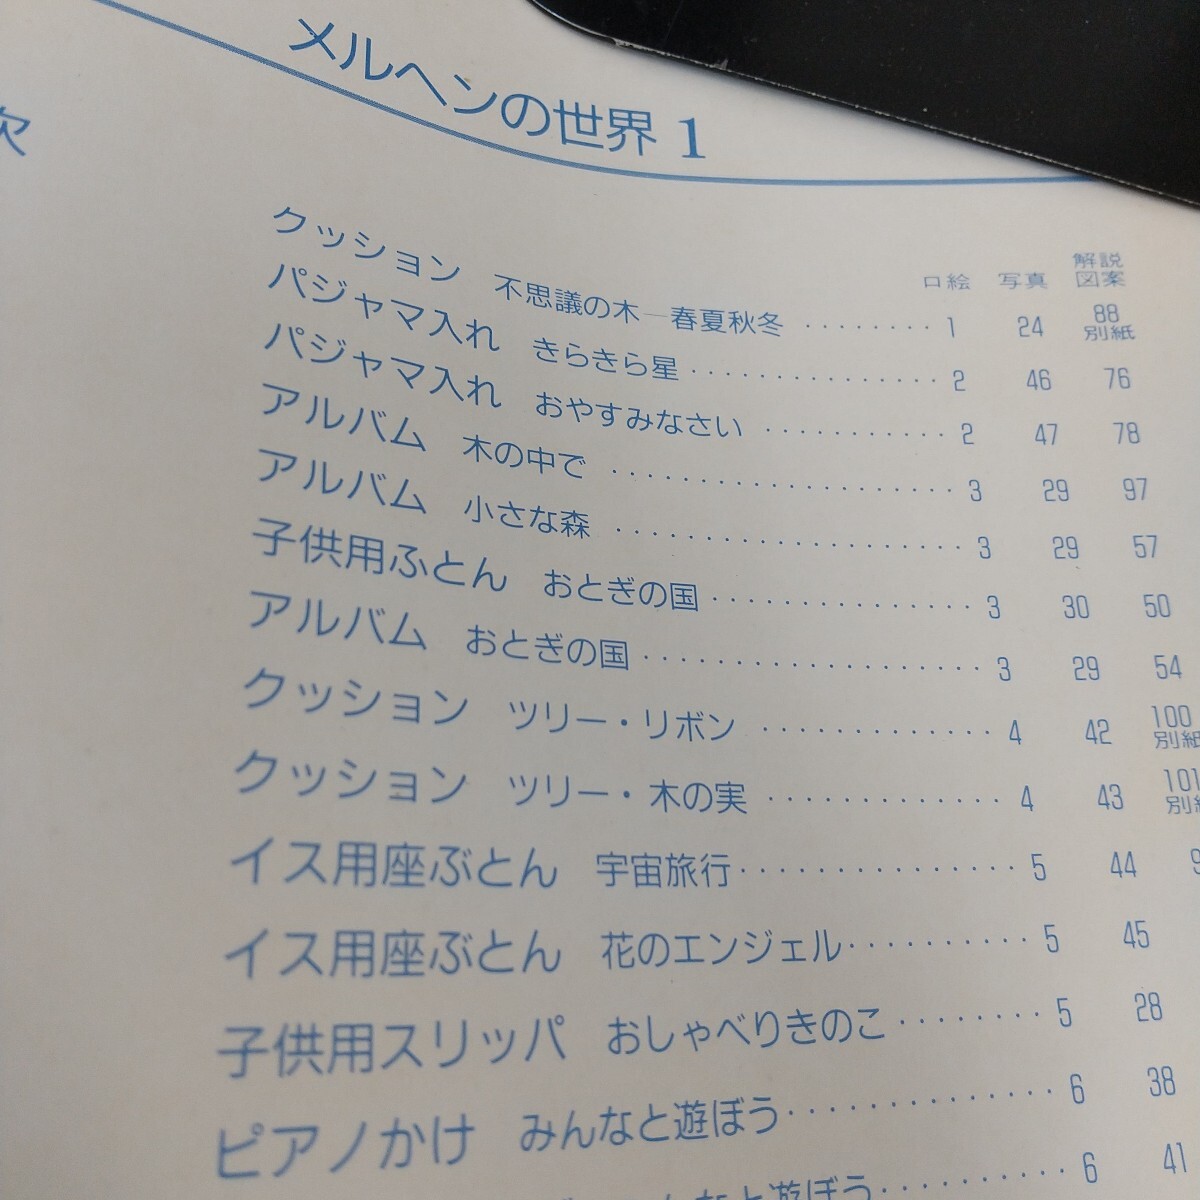 メルヘンの世界 1
次
口絵 写真 解説図案
クッション 不思議の木―春夏秋冬 ········ 1 24 88 別紙
パジャマ入れ きらきら星 ··············· 2 46 76
パジャマ入れ おやすみなさい ··········· 2 47 78
アルバム 木の中で ····················· 3 29 97
アルバム 小さな森 ····················· 3 29 57
子供用ふとん おとぎの国 ················ 3 30 50
アルバム おとぎの国 ···················· 3 29 54
クッション ツリー・リボン ·············· 4 42 100 別紙
クッション ツリー・木の実 ·············· 4 43 101 別紙
イス用座ぶとん 宇宙旅行 ················ 5 44 9
イス用座ぶとん 花のエンジェル ·········· 5 45
子供用スリッパ おしゃべりきのこ ········ 5 28
ピアノかけ みんなと遊ぼう ·············· 6 38
んなと遊ぼう ·········· 6 41